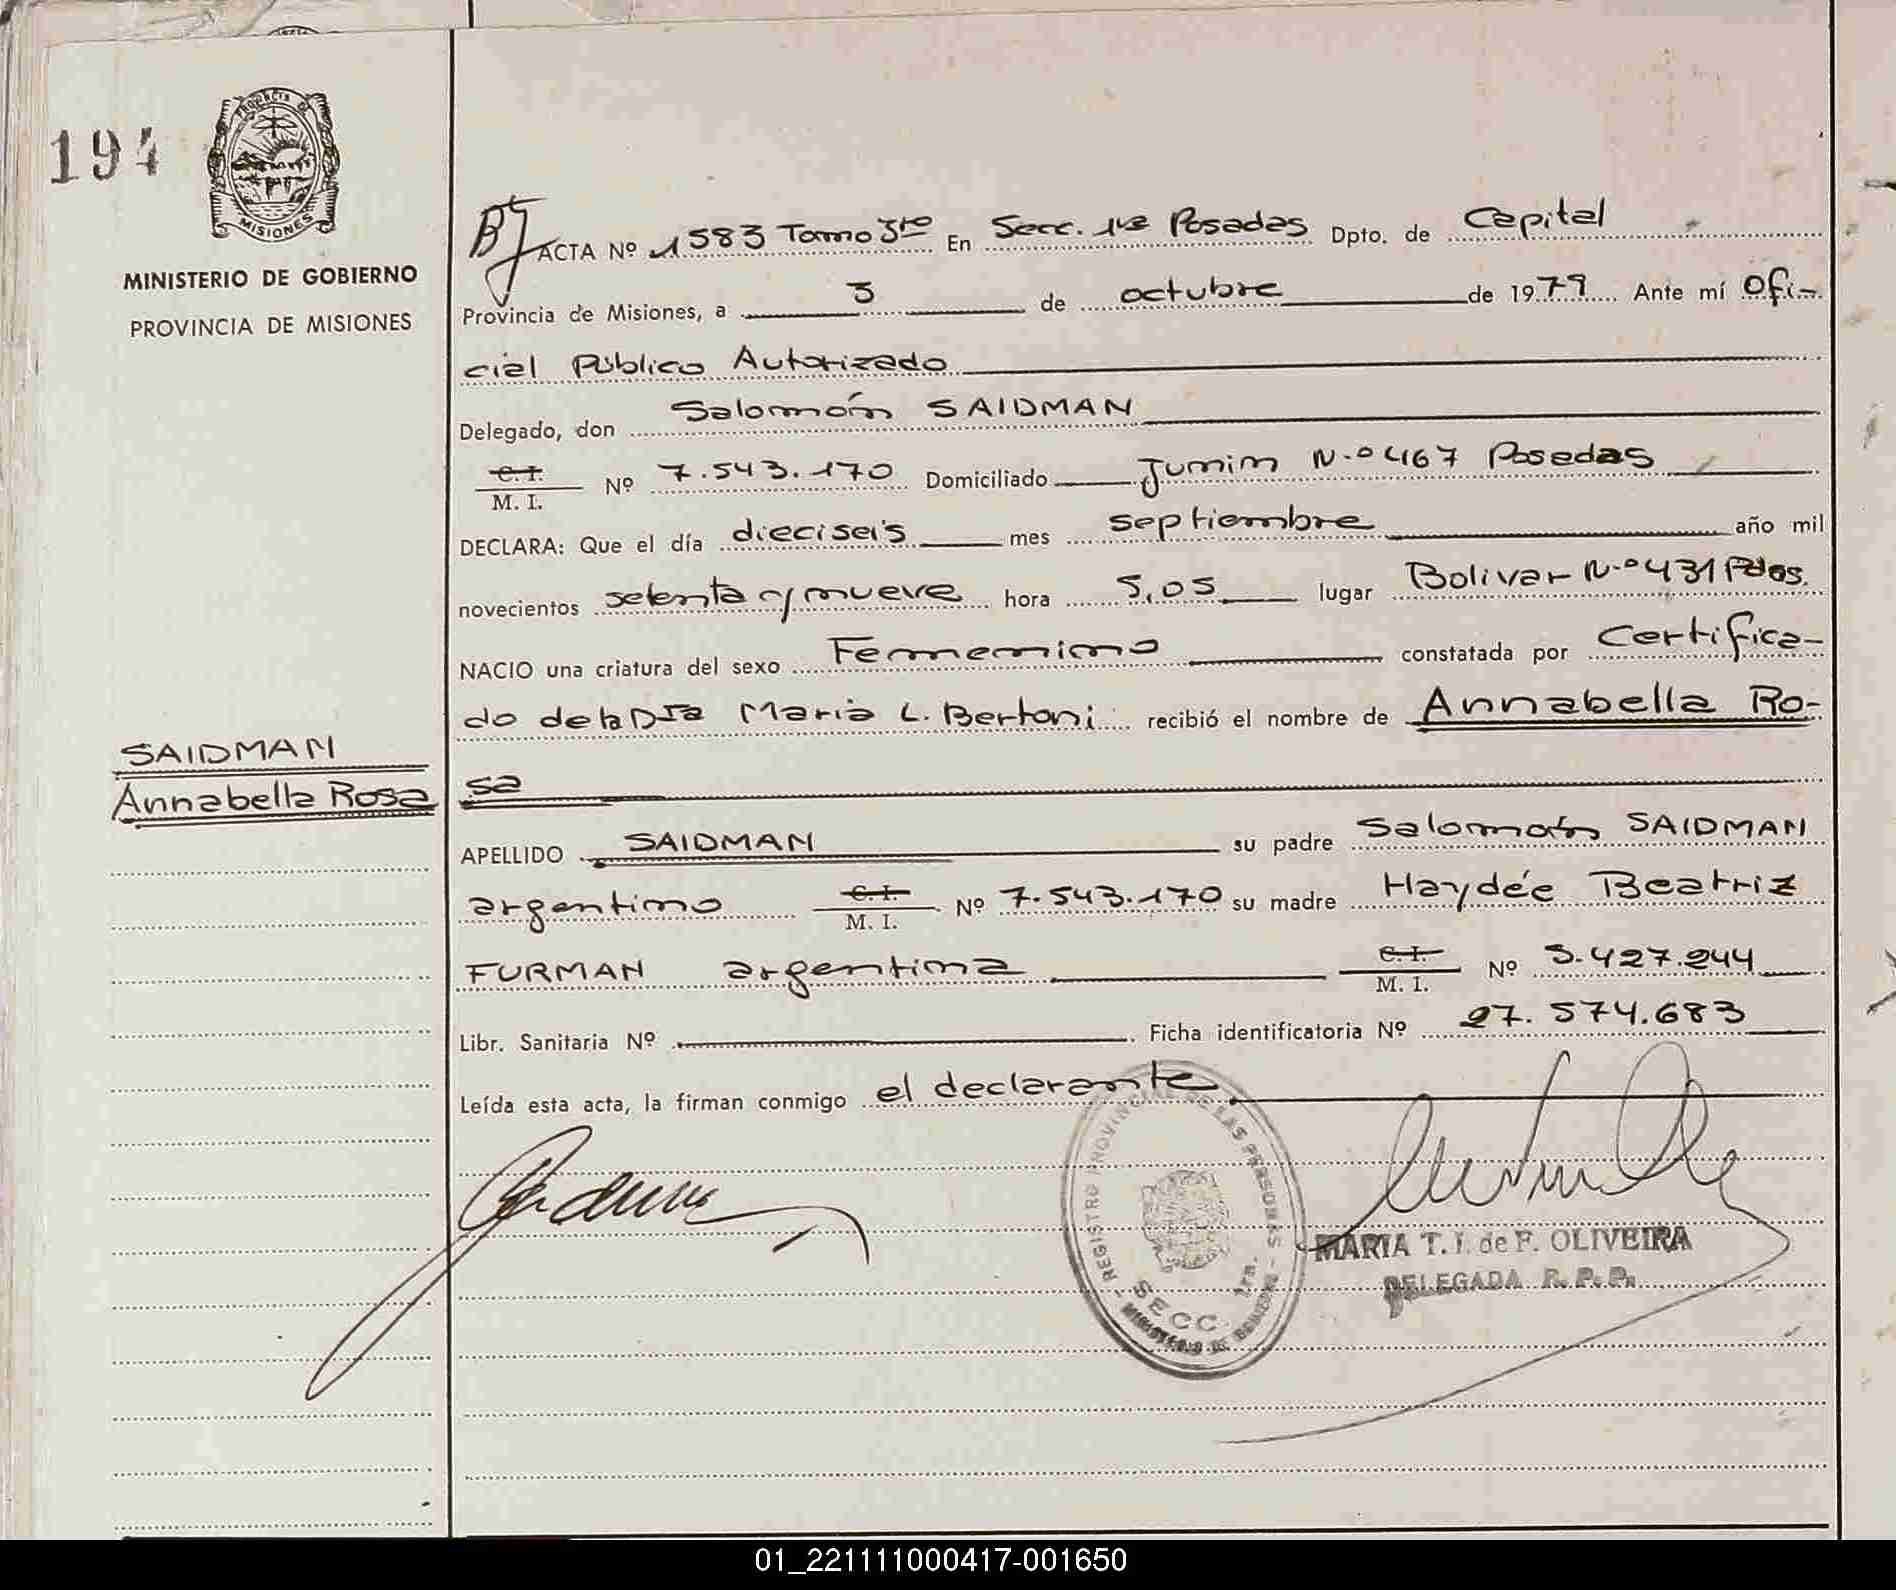 194
PROVINCIA DE
MISIONES
MINISTERIO DE GOBIERNO
PROVINCIA DE MISIONES
ACTA Nº 1583 Tomo 3ro En Secc. 1ra Posadas Dpto. de Capital
Provincia de Misiones, a 3 de octubre de 1979 Ante mí Ofi-
cial Público Autorizado
Delegado, don Salomón SAIDMAN
C. I.
M. I. Nº 7.543.170 Domiciliado Junin N.º 467 Posadas
DECLARA: Que el día dieciseis mes septiembre año mil
novecientos setenta y nueve hora 5,05 lugar Bolivar N.º 431 Pdas.
NACIO una criatura del sexo Femenino constatada por Certifica-
do de la Dra Maria L. Bertoni recibió el nombre de Annabella Ro-
sa
SAIDMAN
Annabella Rosa
APELLIDO SAIDMAN su padre Salomón SAIDMAN
argentino C. I.
M. I. Nº 7.543.170 su madre Haydée Beatriz
FURMAN argentina C. I.
M. I. Nº 5.427.244
Libr. Sanitaria Nº Ficha identificatoria Nº 27.574.683
Leída esta acta, la firman conmigo el declarante
REGISTRO PROVINCIAL DE LAS PERSONAS
SECC. 1ra.
MINISTERIO DE GOBIERNO
MARIA T. J. de F. OLIVEIRA
DELEGADA R. P. P.
01_221111000417-001650